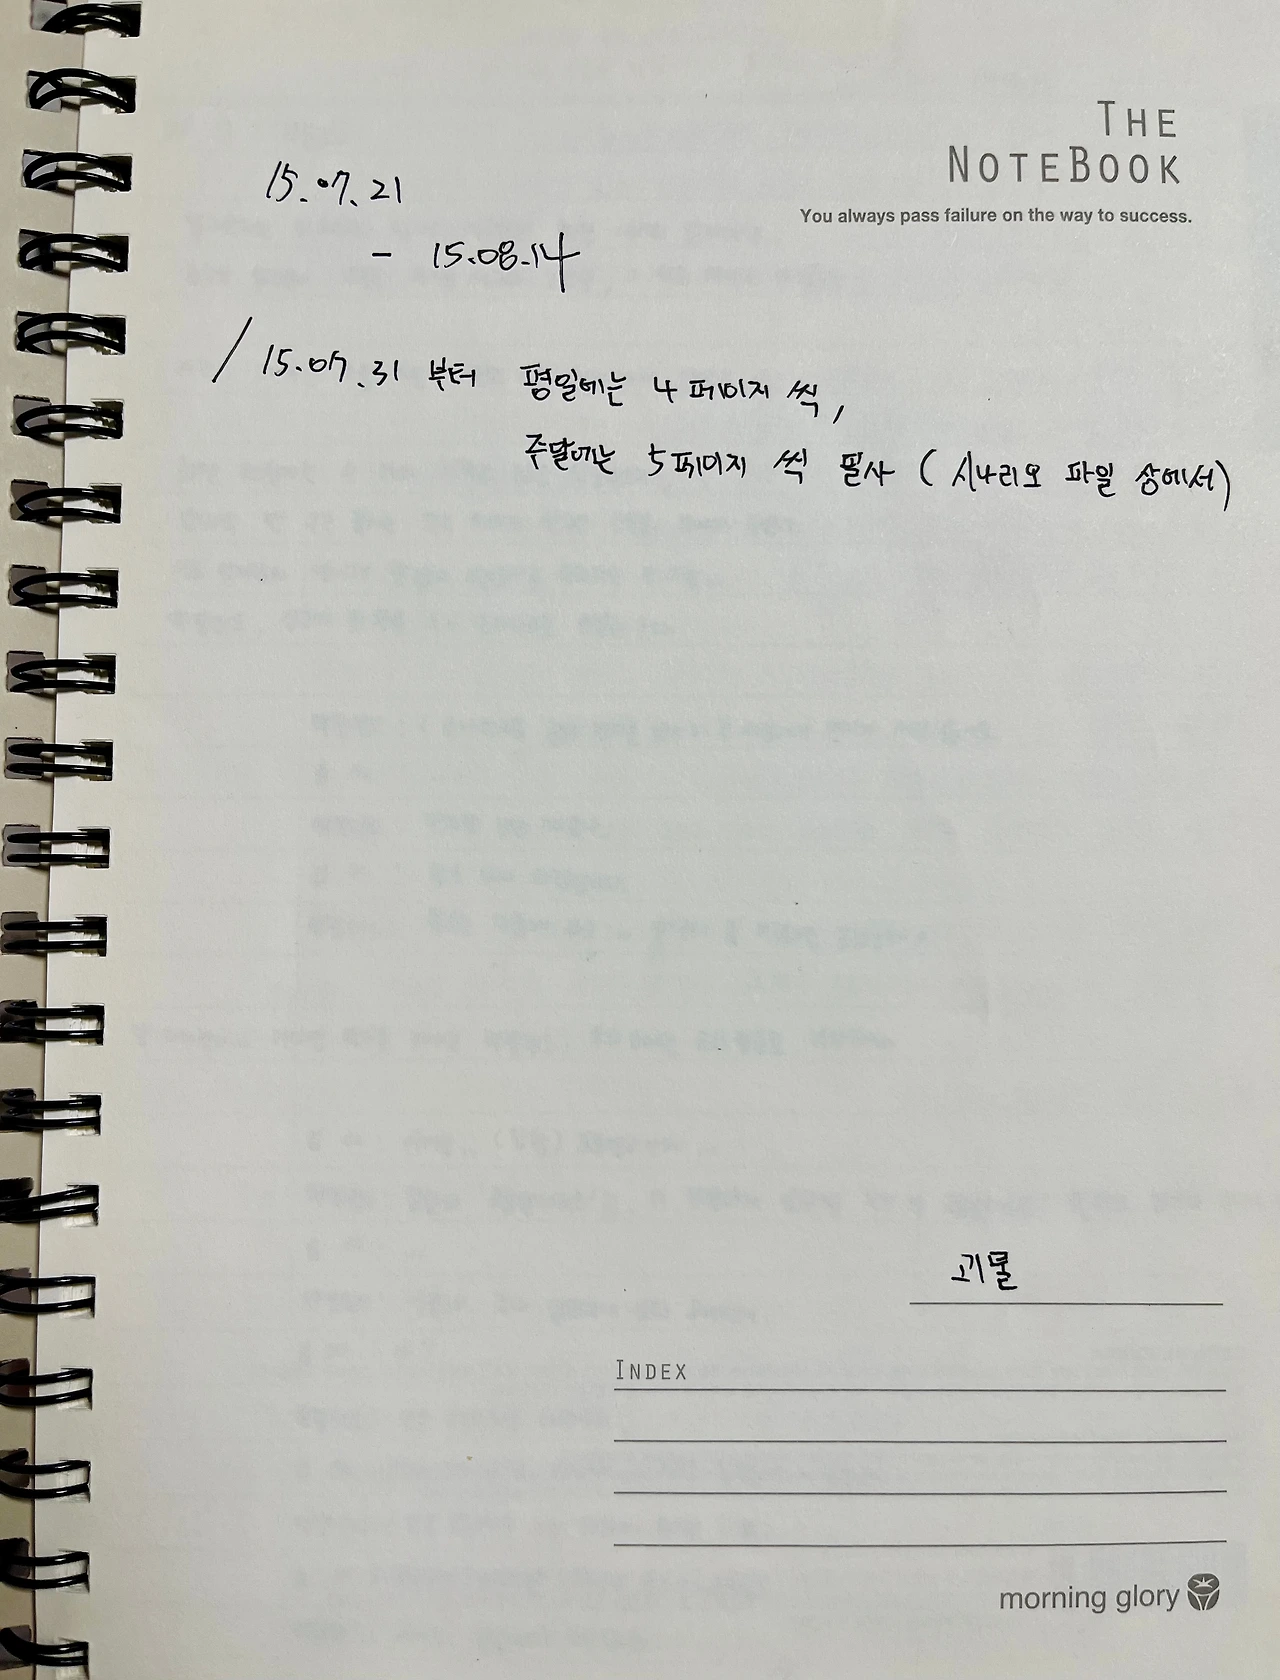 THE
NOTEBOOK
You always pass failure on the way to success.
15.07.21
- 15.08.14
/ 15.07.31 부터 평일에는 4 페이지 씩,
주말에는 5 페이지 씩 필사 ( 시나리오 파일 상에서)
괴물
INDEX
morning glory